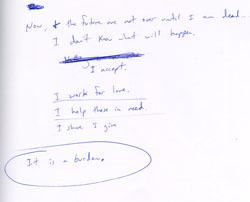 Now, & the future are not over until I am dead.
I don't know what will happen.
I accept.
I work for love.
I help those in need.
I share I give
It is a burden.